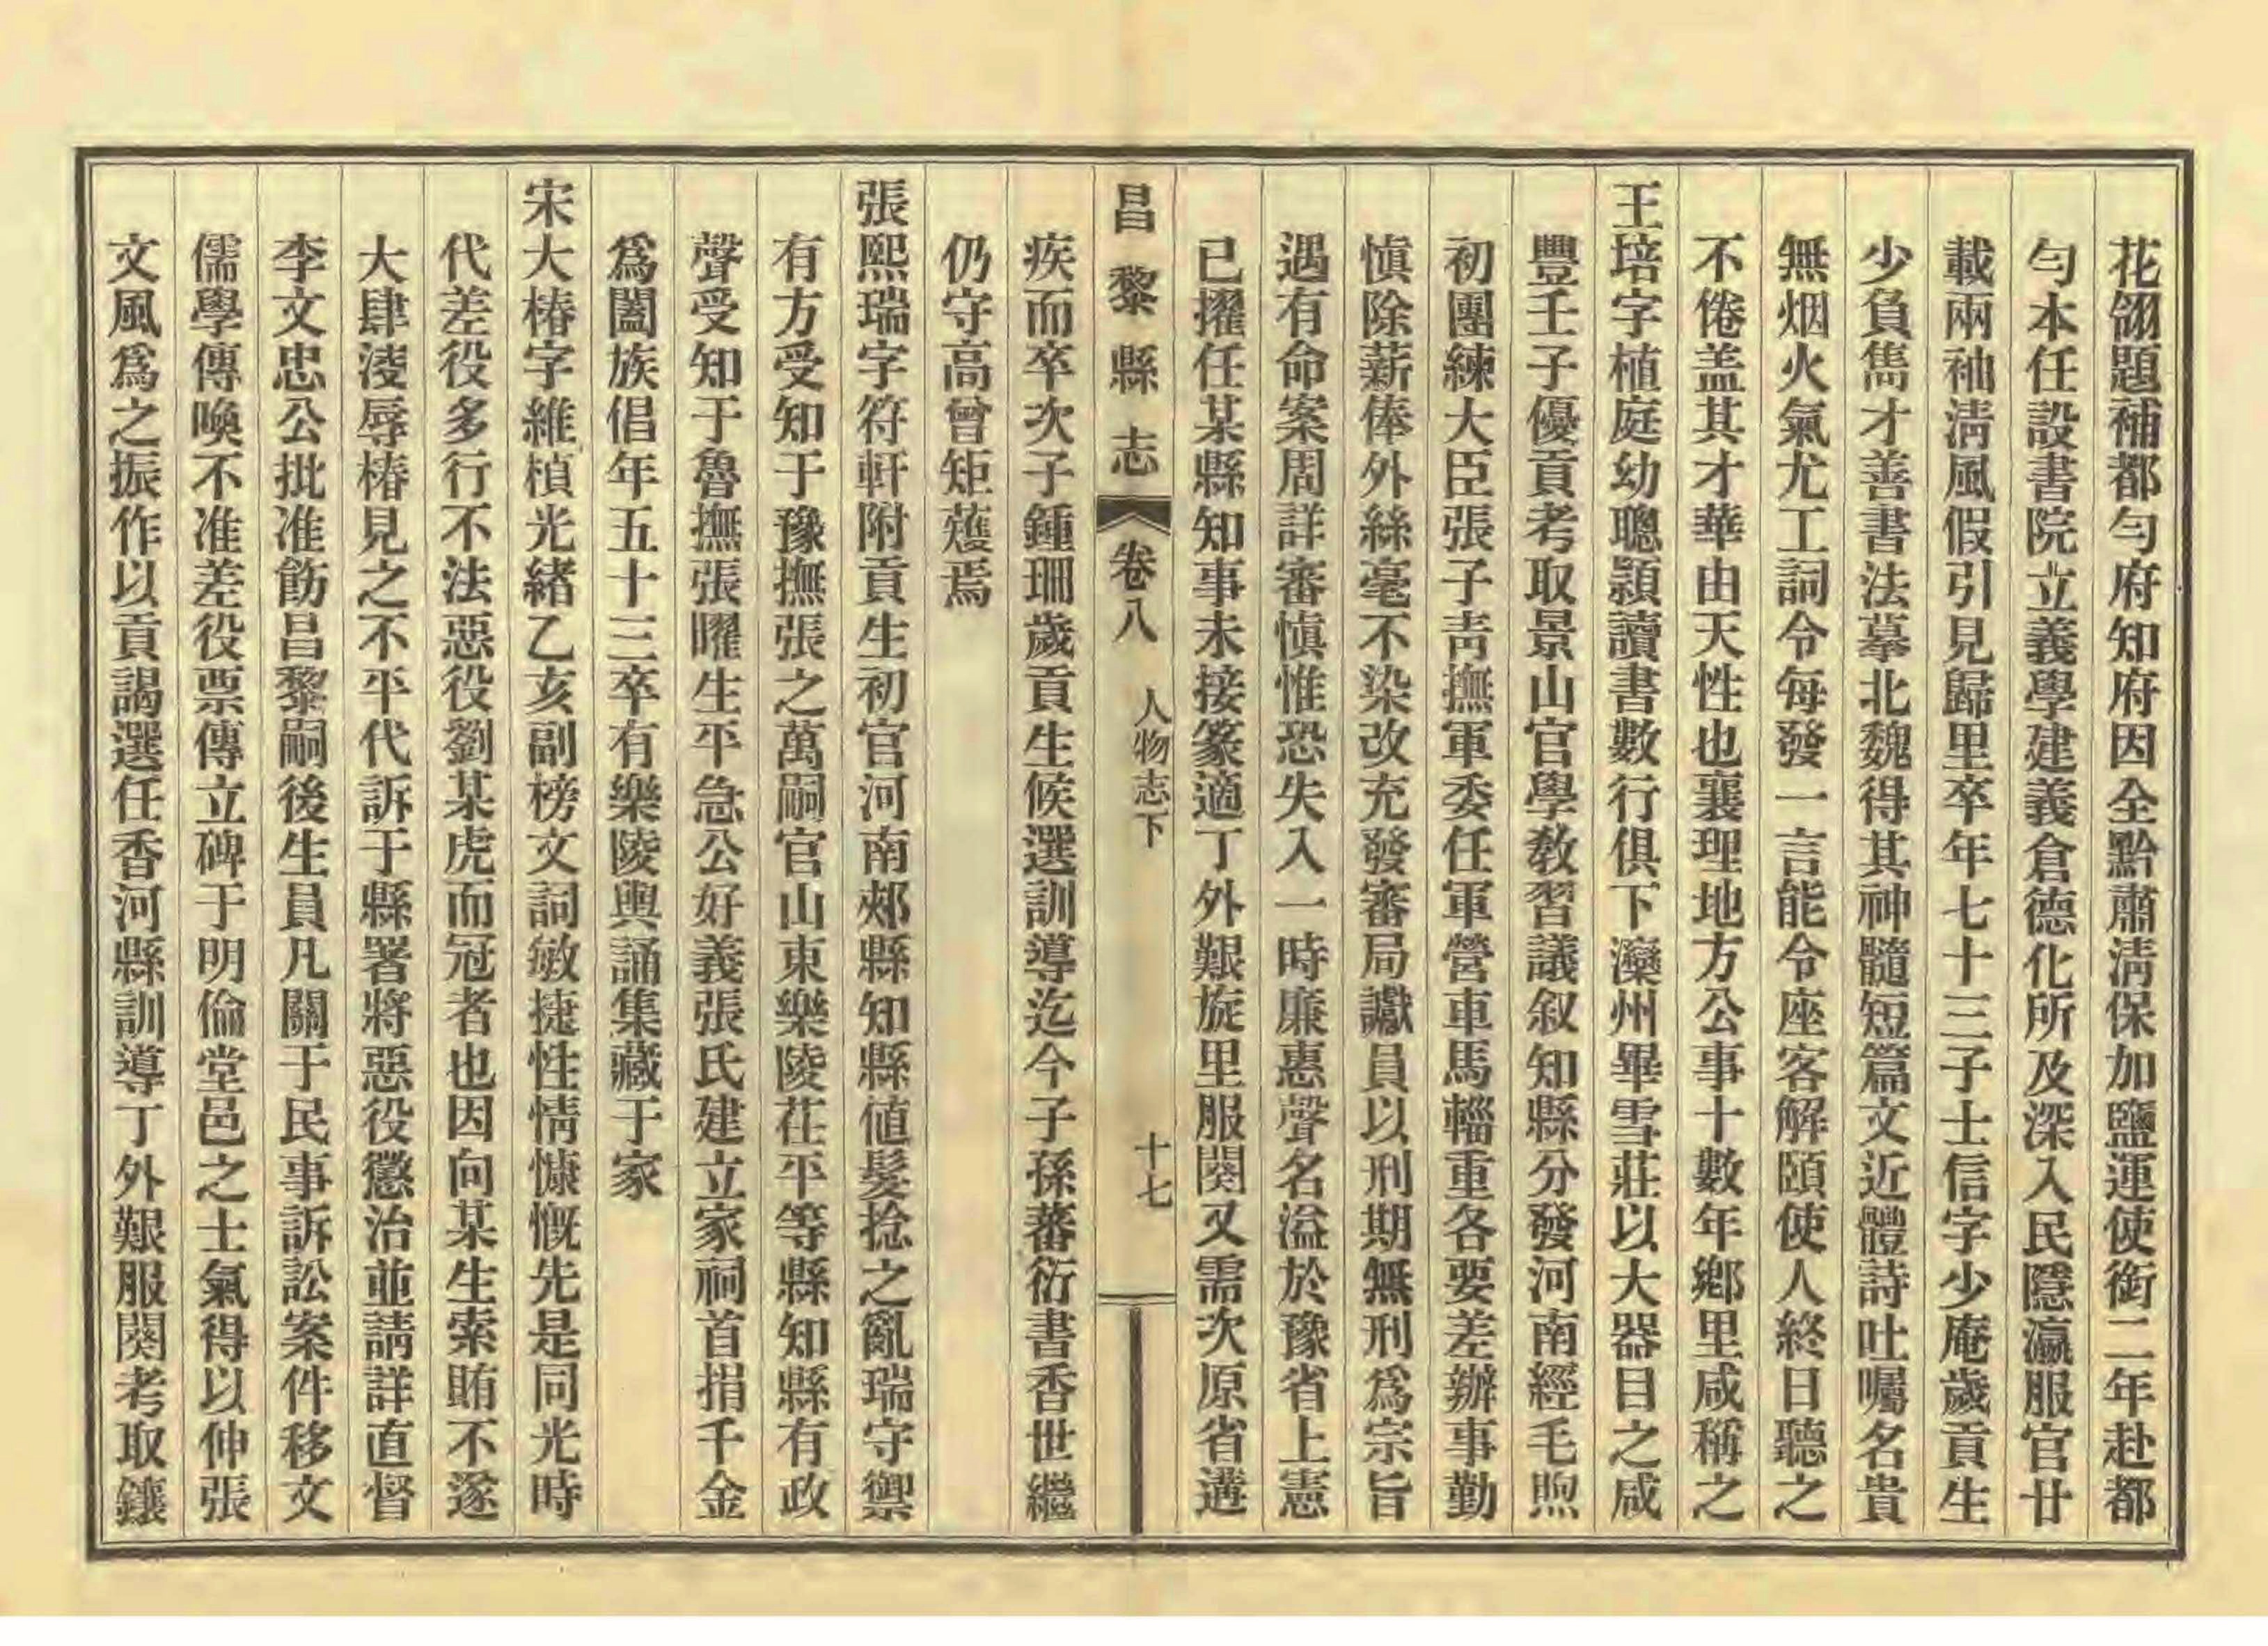 花翎題補都勻府知府因全黔肅淸保加鹽運使銜二年赴都
勻本任設書院立義學建義倉德化所及深入民隱瀛服官廿
載兩袖淸風假引見歸里卒年七十三子士信字少庵歲貢生
少負雋才善書法摹北魏得其神髓短篇文近體詩吐囑名貴
無烟火氣尤工詞令每發一言能令座客解頤使人終日聽之
不倦盖其才華由天性也襄理地方公事十數年鄕里咸稱之
王培字植庭幼聰穎讀書數行俱下灤州畢雪莊以大器目之咸
豐壬子優貢考取景山官學敎習議叙知縣分發河南經毛煦
初團練大臣張子靑撫軍委任軍營車馬輜重各要差辦事勤
愼除薪俸外絲毫不染改充發審局讞員以刑期無刑爲宗旨
遇有命案周詳審愼惟恐失入一時廉惠聲名溢於豫省上憲
已擢任某縣知事未接篆適丁外艱旋里服闋又需次原省遘
昌黎縣志 卷八 人物志下 十七
疾而卒次子鍾珊歲貢生候選訓導迄今子孫蕃衍書香世繼
仍守高曾矩蒦焉
張熙瑞字符軒附貢生初官河南郟縣知縣値髮捻之亂瑞守禦
有方受知于豫撫張之萬嗣官山東樂陵茌平等縣知縣有政
聲受知于魯撫張曜生平急公好義張氏建立家祠首捐千金
爲闔族倡年五十三卒有樂陵輿誦集藏于家
宋大椿字維楨光緒乙亥副榜文詞敏捷性情慷慨先是同光時
代差役多行不法惡役劉某虎而冠者也因向某生索賄不遂
大肆淩辱椿見之不平代訴于縣署將惡役懲治並請詳直督
李文忠公批准飭昌黎嗣後生員凡關于民事訴訟案件移文
儒學傳喚不准差役票傳立碑于明倫堂邑之士氣得以伸張
文風爲之振作以貢謁選任香河縣訓導丁外艱服闋考取鑲